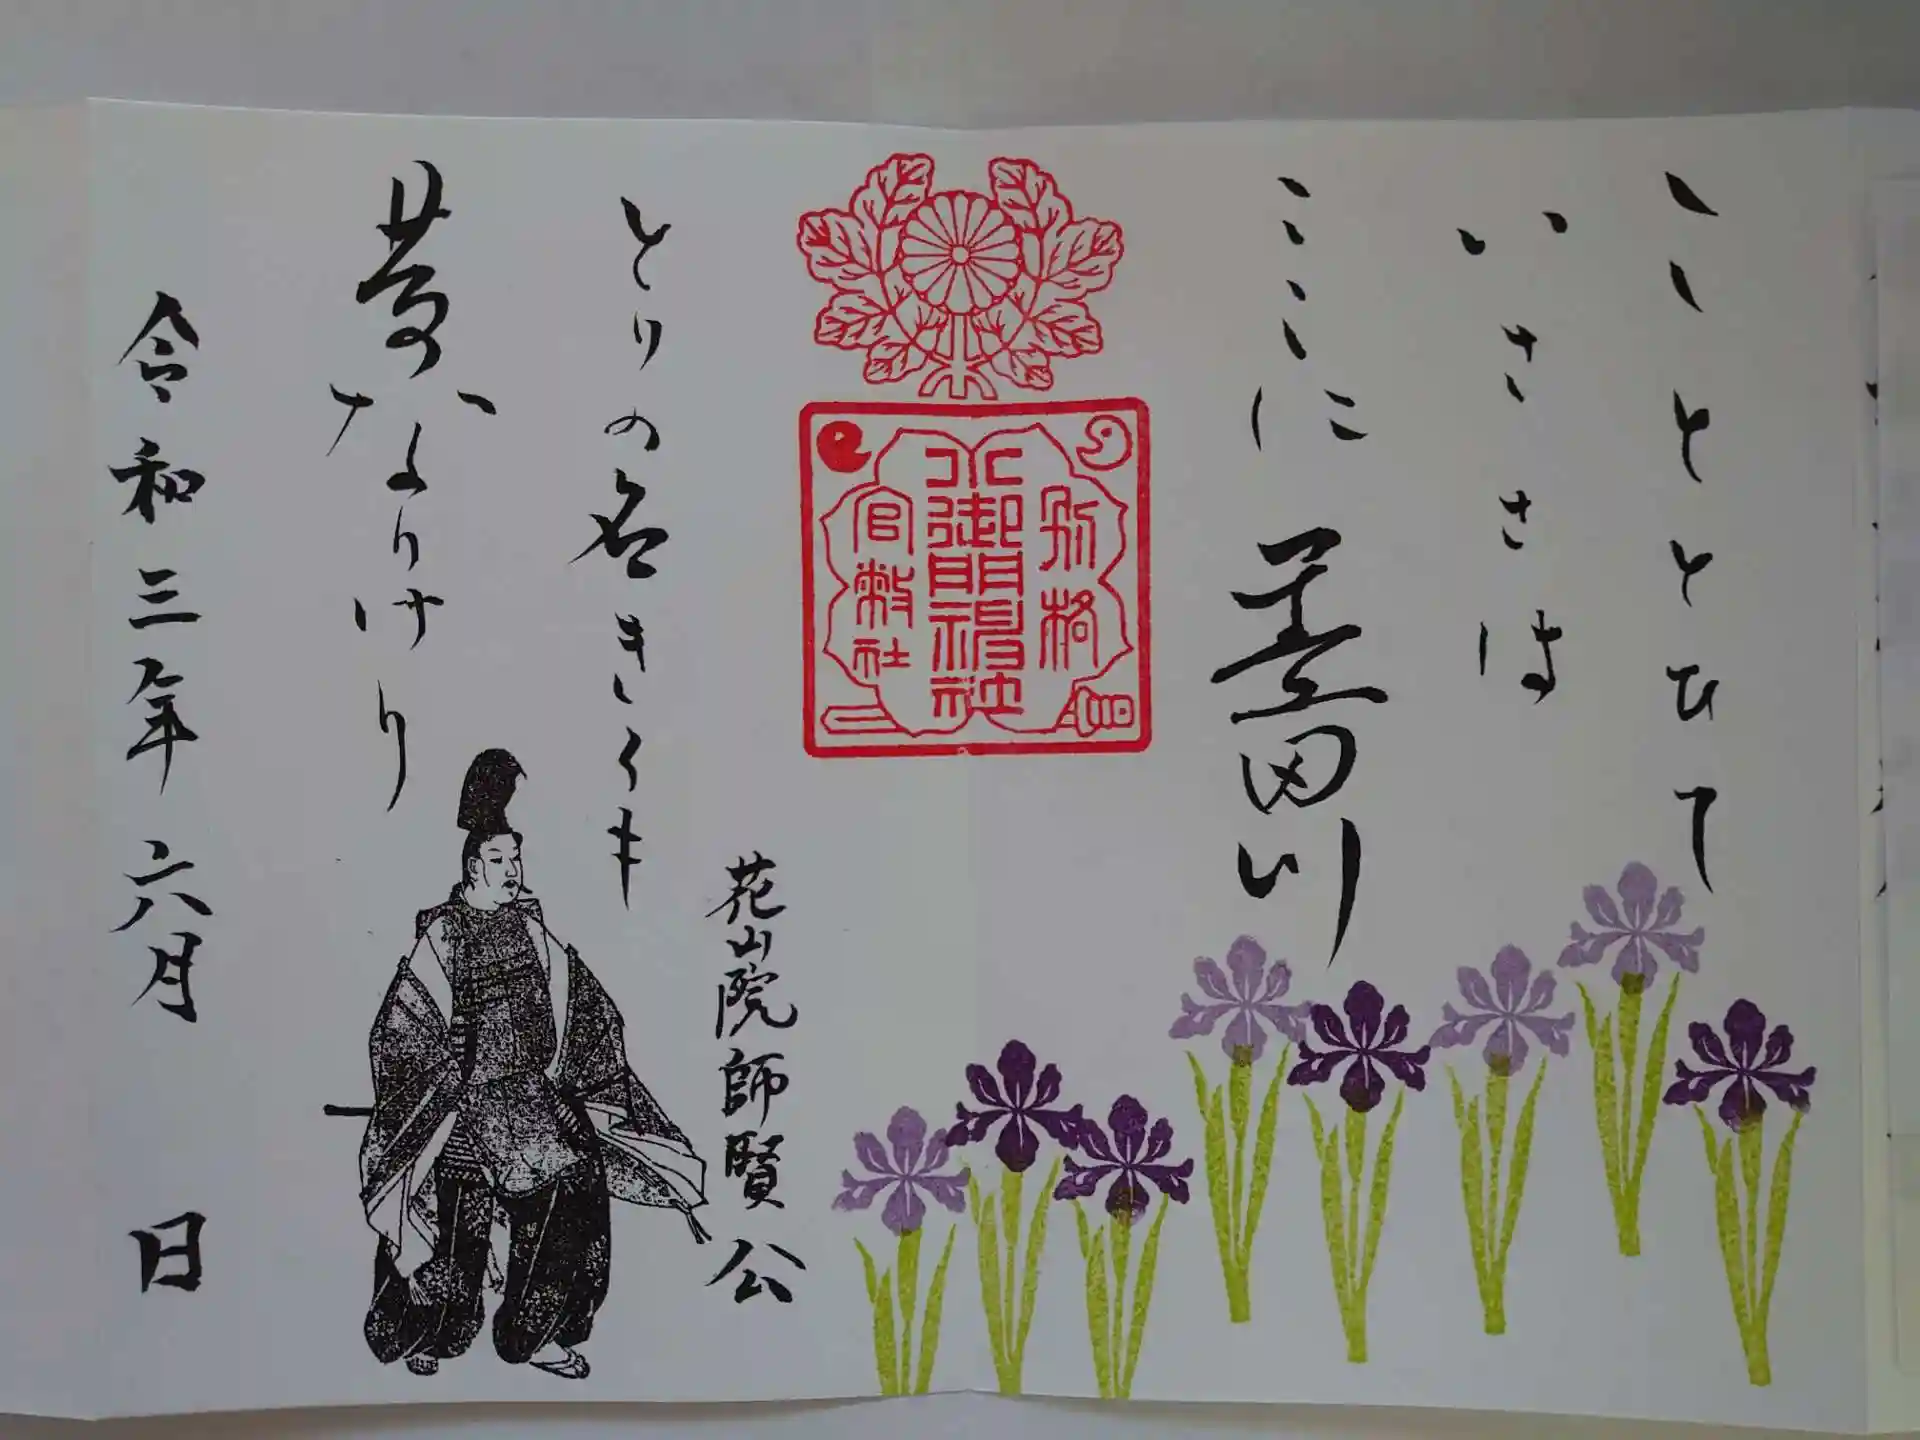 こととひて
いささは
ここに墨田川
別格
小御門神社
官幣社
とりの名きくも
なりけり
花山院師賢公
令和三年六月 日